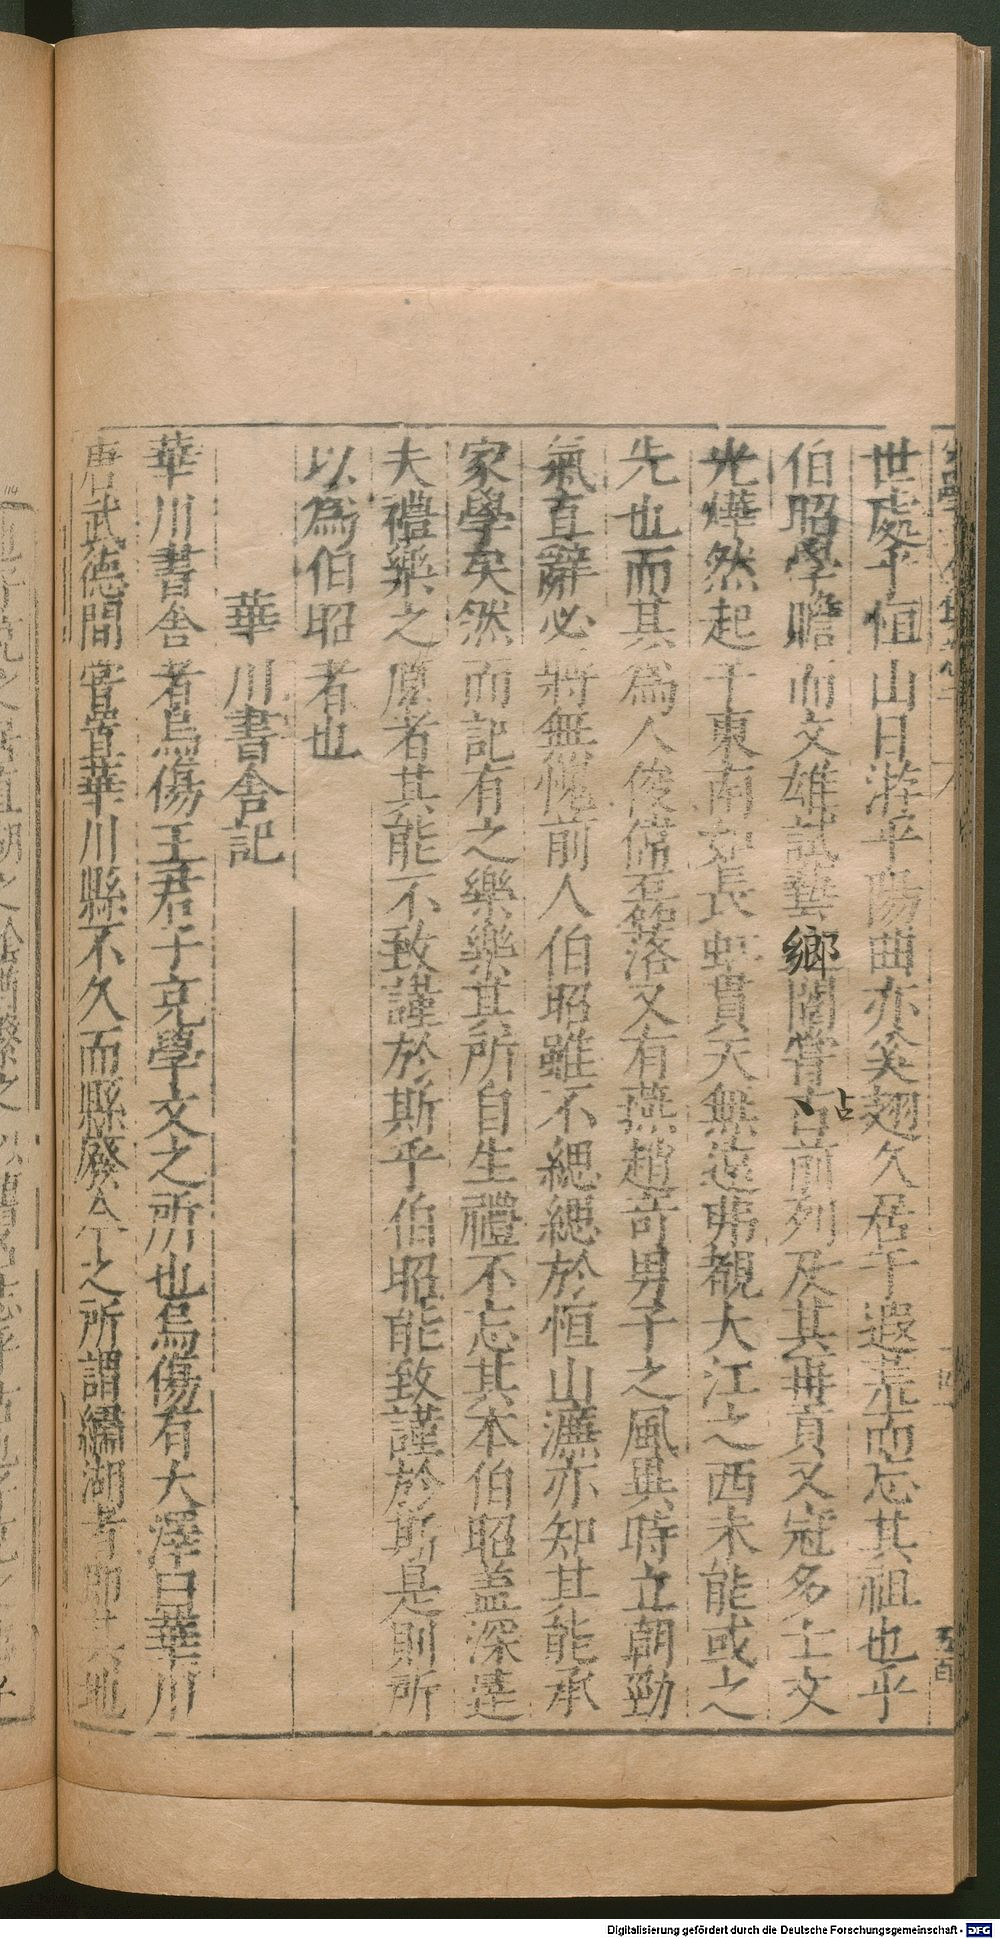 世處乎恒山日游乎陽曲亦奚翅久居乎遐荒而忘其祖也乎
伯昭學瞻而文雄試藝鄉闈嘗占前列及其再貢又冠多士文
占
光燁然起于東南如長虹貫天無遠弗覩大江之西未能或之
先也而其為人俊偹磊落又有燕趙竒男子之風異時立朝勁
氣直辭必將無愧前人伯昭雖不緦緦於恒山濂亦知其能承
家學矣然而記有之樂樂其所自生禮不忘其本伯昭盖深達
夫禮樂之原者其能不致謹於斯乎伯昭能致謹於斯是則所
以為伯昭者也
華川書舍記
華川書舍者烏傷王君子充學文之所也烏傷有大澤曰華川
唐武德間嘗置華川縣不久而縣廢今之所謂繡湖者即其地
Digitalisierung gefördert durch die Deutsche Forschungsgemeinschaft - DFG